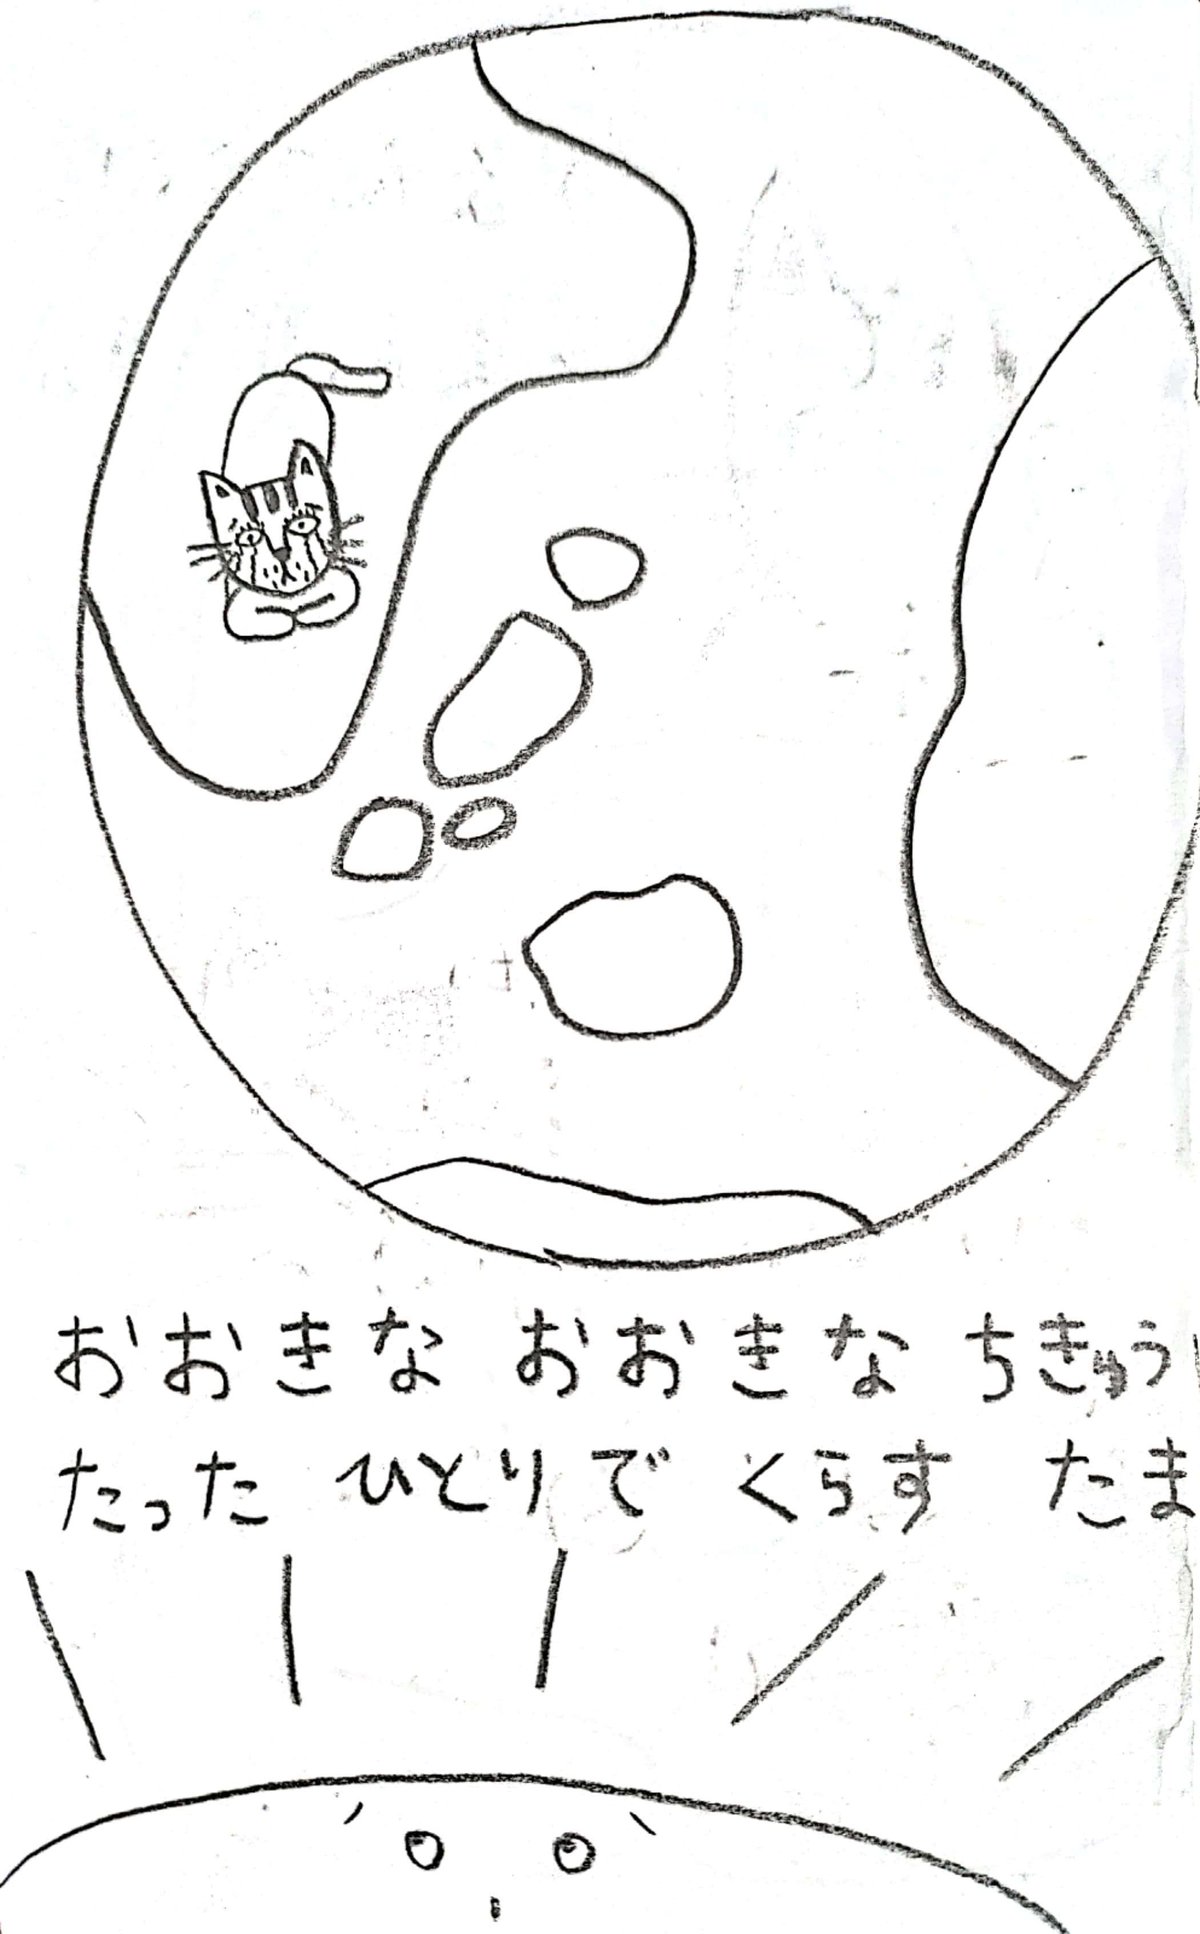 おおきな おおきな ちきゅう
たった ひとりで くらす たま